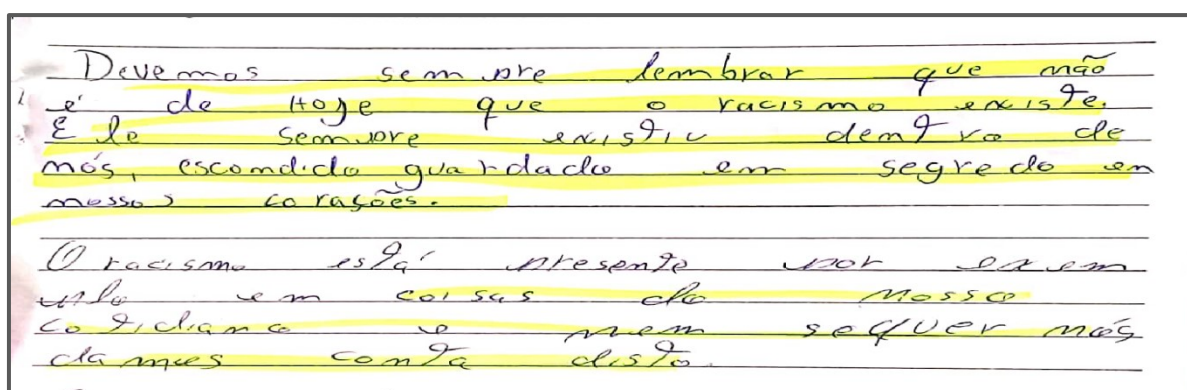 Devemos sempre lembrar que não
é de Hoje que o racismo existe.
Ele sempre existiu dentro de
nós, escondido guardado em segredo en
nossos corações.
O racismo está presente por exem
plo em coisas do nosso
cotidiano e nem sequer nós
damos conta disto.